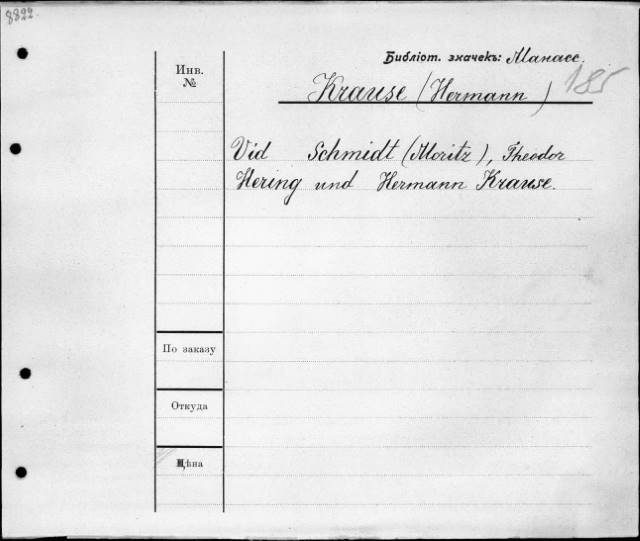 8822.
Библіот. значекъ: Манасс.
185
Инв.
№
Krause (Hermann)
Vid Schmidt (Moritz), Theodor
Hering und Hermann Krause.
По заказу
Откуда
Цѣна